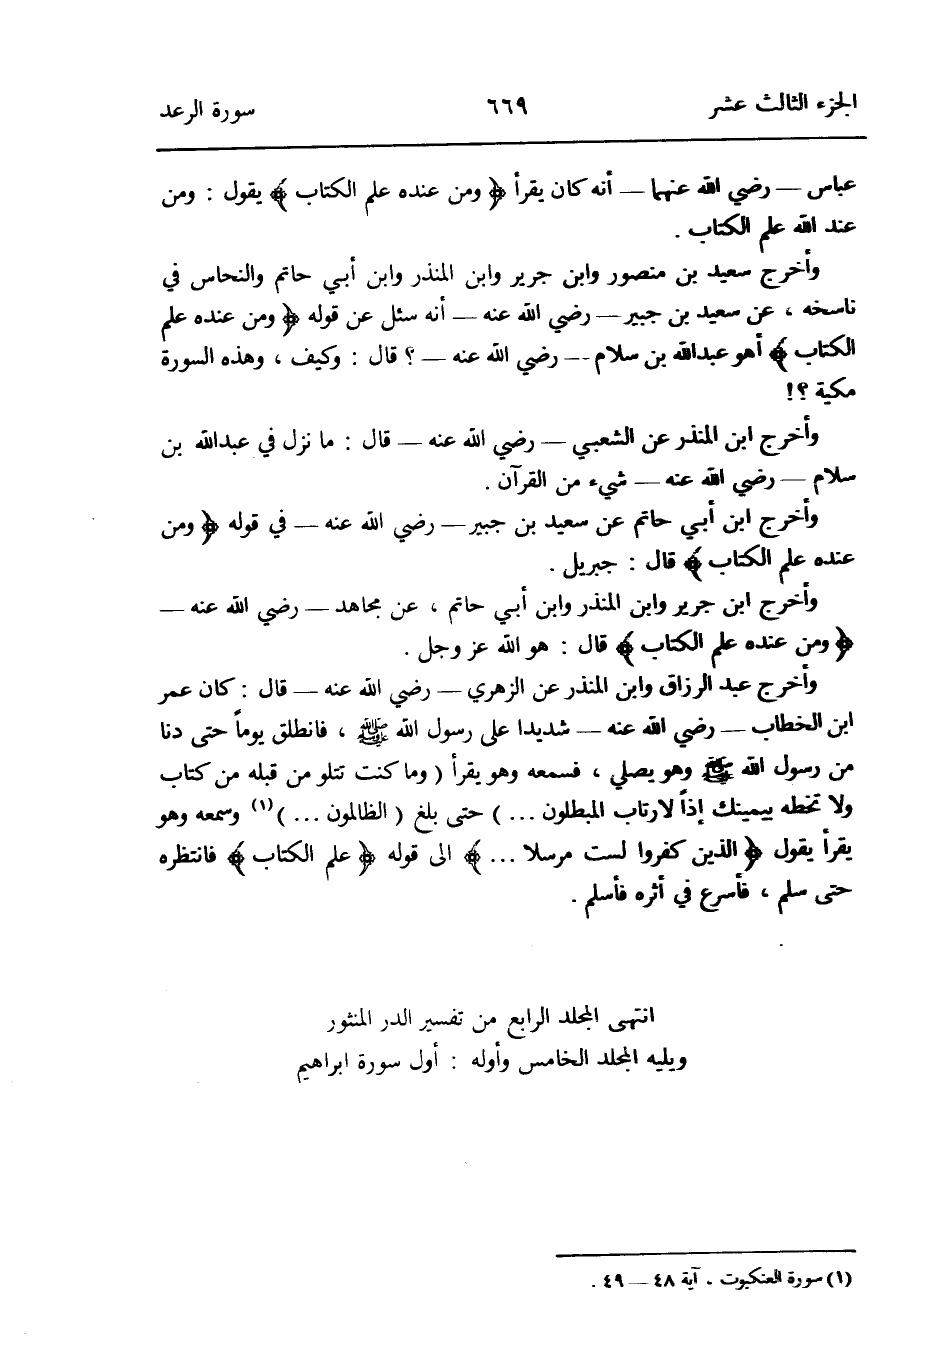 الجزء الثالث عشر ٦٦٩ سورة الرعد
عباس — رضي الله عنهما — أنه كان يقرأ ﴿ ومن عنده علم الكتاب ﴾ يقول : ومن
عند الله علم الكتاب .
وأخرج سعيد بن منصور وابن جرير وابن المنذر وابن أبي حاتم والنحاس في
ناسخه ، عن سعيد بن جبير — رضي الله عنه — أنه سئل عن قوله ﴿ ومن عنده علم
الكتاب ﴾ أهو عبدالله بن سلام — رضي الله عنه — ؟ قال : وكيف ، وهذه السورة
مكية ؟!
وأخرج ابن المنذر عن الشعبي — رضي الله عنه — قال : ما نزل في عبدالله بن
سلام — رضي الله عنه — شيء من القرآن .
وأخرج ابن أبي حاتم عن سعيد بن جبير — رضي الله عنه — في قوله ﴿ ومن
عنده علم الكتاب ﴾ قال : جبريل .
وأخرج ابن جرير وابن المنذر وابن أبي حاتم ، عن مجاهد — رضي الله عنه —
﴿ ومن عنده علم الكتاب ﴾ قال : هو الله عز وجل .
وأخرج عبد الرزاق وابن المنذر عن الزهري — رضي الله عنه — قال : كان عمر
ابن الخطاب — رضي الله عنه — شديدا على رسول الله ﷺ ، فانطلق يوماً حتى دنا
من رسول الله ﷺ وهو يصلي ، فسمعه وهو يقرأ ( وما كنت تتلو من قبله من كتاب
ولا تخطه بيمينك إذاً لارتاب المبطلون ... ) حتى بلغ ( الظالمون ... ) (١) وسمعه وهو
يقرأ يقول ﴿ الذين كفروا لست مرسلا ... ﴾ الى قوله ﴿ علم الكتاب ﴾ فانتظره
حتى سلم ، فأسرع في أثره فأسلم .
انتهى المجلد الرابع من تفسير الدر المنثور
ويليه المجلد الخامس وأوله : أول سورة ابراهيم
(١) سورة العنكبوت . آية ٤٨ — ٤٩ .